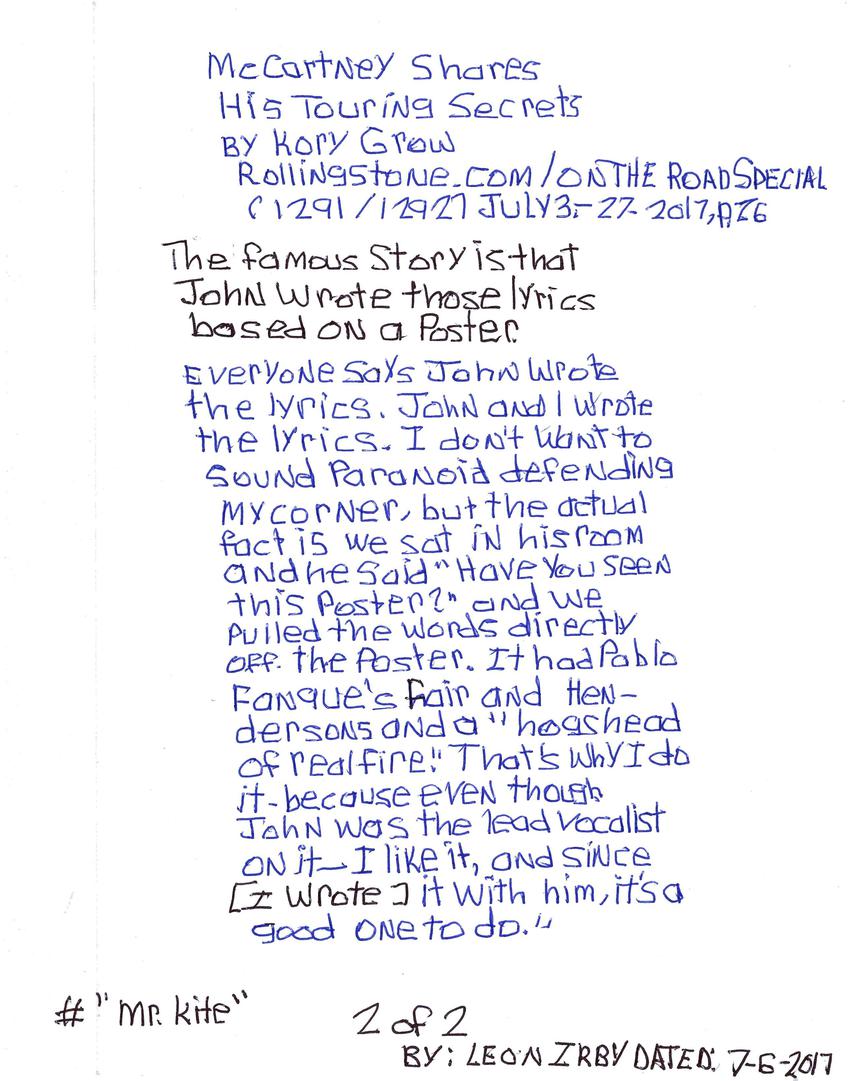 McCartney Shares
His Touring Secrets
BY Kory Grow
Rollingstone.COM/ONTHE ROADSPECIAL
(1291/1292) JULY3-27-2017,
The famous Story is that
John Wrote those lyrics
based ON a Poster.
Everyone Says John Wrote
the lyrics. John and I Wrote
the lyrics. I don't Want to
Sound Paranoid defending
My corner, but the actual
fact is we sat in his room
and he Said "Have You Seen
this Poster?" and we
Pulled the words directly
off the Poster. It had Pablo
Fanque's Fair and Hen-
dersons and a "hogshead
of real fire." That's Why I do
it-because even though
John was the lead vocalist
on it- I like it, and since
[I Wrote] it With him, it's a
good One to do."
# "Mr. kite"
2 of 2
BY: LEON IRBY DATED: 7-6-2017